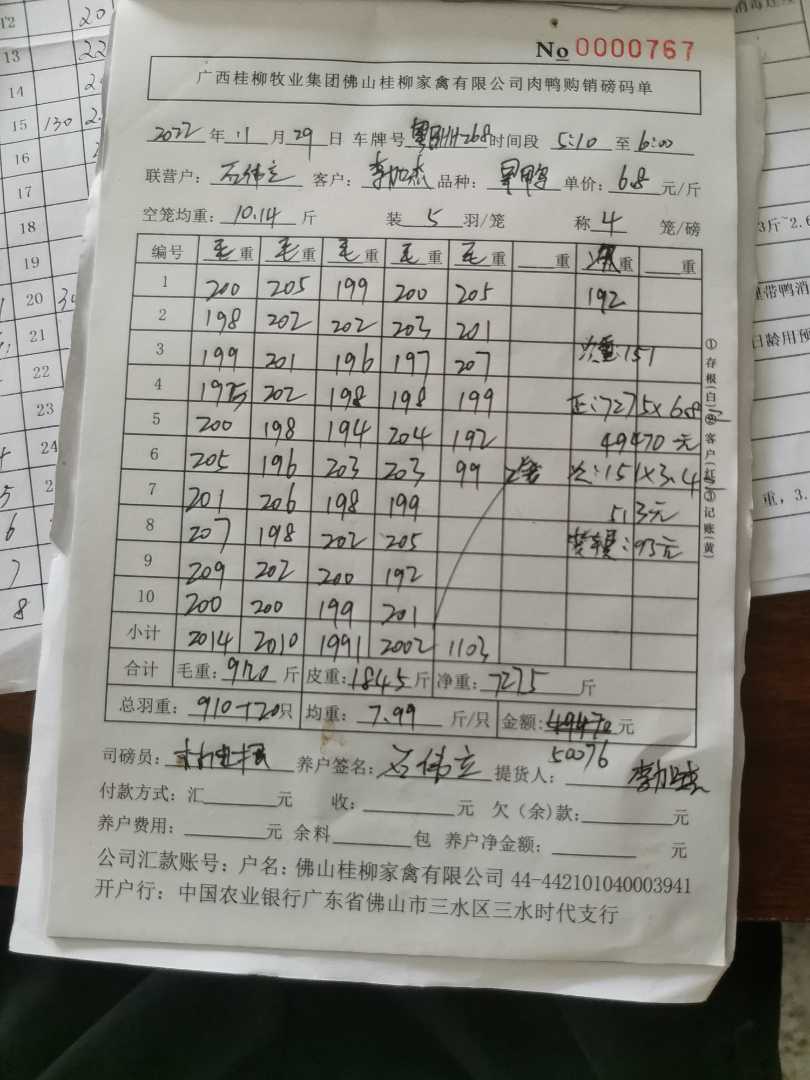 No 0000767
广西桂柳牧业集团佛山桂柳家禽有限公司肉鸭购销磅码单
2022年11月29日 车牌号 时间段 5:10 至 6:00
联营户: 石伟立 客户: 李加杰 品种: 单价: 6.8 元/斤
空笼均重: 10.14 斤 装 5 羽/笼 称 4 笼/磅
编号 毛重 毛重 毛重 毛重 毛重 重 重 重
1 200 205 199 200 205 192
2 198 202 202 203 201
3 199 201 196 197 207 次重:151
4 1975 202 198 198 199 正:7275×6.8
5 200 198 194 204 192 49470元
6 205 196 203 203 99 2笼 次:151×3.4
7 201 206 198 199 513元
8 207 198 202 205 :93元
9 209 202 200 192
10 200 200 199 201
小计 2014 2010 1991 2002 1103
合计 毛重: 9120 斤 皮重: 1845 斤 净重: 7275 斤
总羽重: 910+20只 均重: 7.99 斤/只 金额: 49470元
50076
司磅员: 养户签名: 石伟立 提货人: 李加杰
付款方式: 汇 元 收: 元 欠(余)款: 元
养户费用: 元 余料 包 养户净金额: 元
公司汇款账号: 户名: 佛山桂柳家禽有限公司 44-442101040003941
开户行: 中国农业银行广东省佛山市三水区三水时代支行
①存根(白)②客户(红)③记账(黄)
12 20
13 22
14
15 130
16
17
18
19
20
21
22
23
24
3斤~2.6
带鸭消
日龄用预
重, 3.